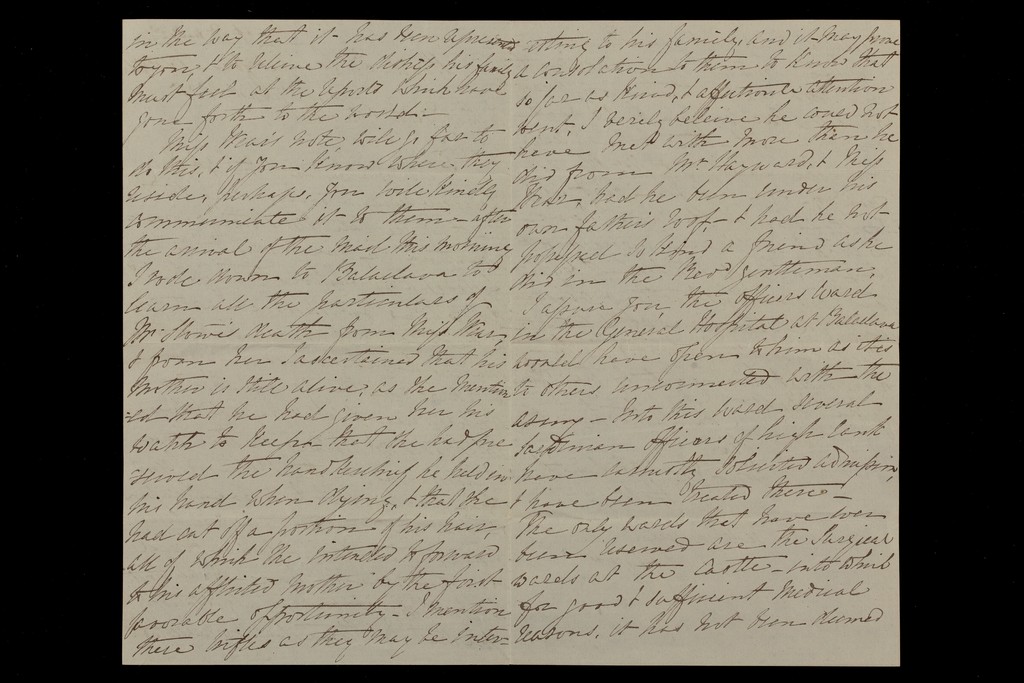 in the way that it has been represented
to you, & to relieve the distress his family
must feel at the reports which have
gone forth to the world.
Miss Wear's note, will go far to
do this, & if you know where they
reside, perhaps, you will kindly
communicate it to them - after
the arrival of the mail this morning
I rode down to Balaclava to
learn all the particulars of
Mr Stowe's death from Miss Wear,
& from her I ascertained that his
Mother is still alive; as she mention
=ed that he had given her his
watch to keep, & that she had pre
=served the handkerchief he held in
his hand when dying, & that she
had cut off a portion of his hair,
all of which she intended to forward
to his afflicted Mother by the first
favorable opportunity - I mention
these trifles as they may be inter-
esting to his family, and it may prove
a consolation to them to know that
so far as kind, & affectionate attention
went, I verily beleive he could not
have met with more than he
did from Mr Hayward, & Miss
Wear, had he been under his
own father's roof, & had he not
possessed so kind a friend as he
did in the Revd gentleman.
I assure you, the officers ward
in the General Hospital at Balaclava
would have been open to him as it is
to others unconnected with the
army - Into this ward several
Sardinian Officers of high rank
have earnestly solicited admission,
& have been treated there -
The only wards that have ever
been reserved are the Surgical
wards at the Castle - into which
for good & sufficient Medical
reasons, it has not been deemed